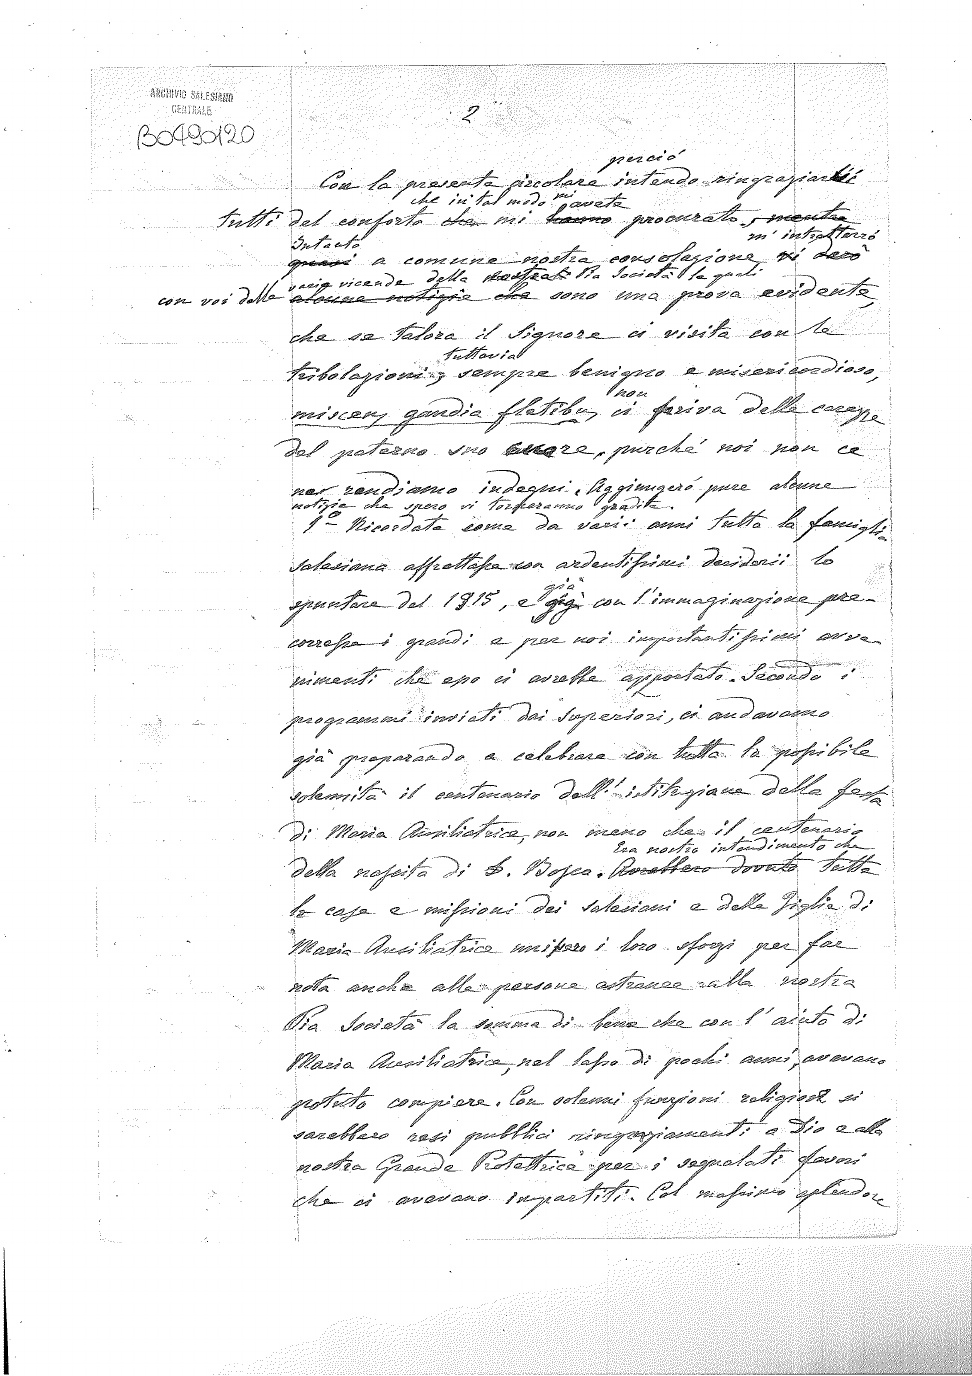 ARCHIVIO SALESIANO
CENTRALE
B0490120
2
perciò
Con la presente circolare intendo ringraziarvi
che in tal modo mi avete
tutti del conforto che mi hanno procurato, mentre
Intanto m'intratterrò
quasi a comune nostra consolazione vi darò
varie vicende della nostra Pia Società le quali
con voi delle alcune notizie che sono una prova evidente,
che se talora il Signore ci visita con le
tuttavia
tribolazioni, sempre benigno e misericordioso,
non
miscens gaudia fletibus, ci priva delle carezze
del paterno suo cuore, purché noi non ce
ne rendiamo indegni. Aggiungerò pure alcune
notizie che spero vi torneranno gradite.
1° Ricordate come da varii anni tutta la famiglia
salesiana affrettasse con ardentissimi desiderii lo
già
spuntare del 1915, e già con l'immaginazione pre-
corresse i grandi e per noi importantissimi avve-
nimenti che esso ci avrebbe apportato. Secondo i
programmi inviati dai Superiori, ci andavamo
già preparando a celebrare con tutta la possibile
solennità il centenario dell'istituzione della festa
di Maria Ausiliatrice, non meno che il centenario
Era nostro intendimento che
della nascita di D. Bosco. Avrebbero dovuto tutte
le case e missioni dei Salesiani e delle Figlie di
Maria Ausiliatrice unissero i loro sforzi per far
nota anche alle persone estranee alla nostra
Pia Società la somma di bene che con l'aiuto di
Maria Ausiliatrice, nel lasso di pochi anni, avevano
potuto compiere. Con solenni funzioni religiose si
sarebbero resi pubblici ringraziamenti a Dio e alla
nostra Grande Protettrice per i segnalati favori
che ci avevano impartiti. Col massimo splendore